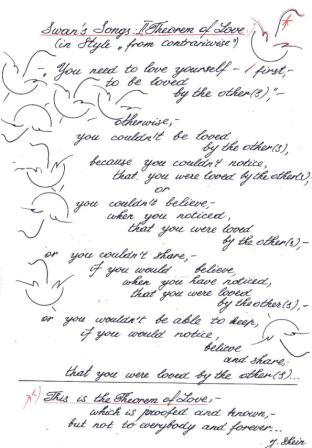 Swan's Songs: II Theorem of Love
(in Style „from contrariwise")
„You need to love yourself - first,-
to be loved
by the other(s),"-
otherwise,-
you couldn't be loved
by the other(s),
because you couldn't notice,
that you were loved by the other(s),
or
you couldn't believe,-
when you noticed,
that you were loved
by the other(s),-
or you couldn't share,-
if you would believe,
when you have noticed,
that you were loved
by the other(s),-
or you wouldn't be able to keep,
if you would notice,
believe
and share,
that you were loved by the other(s)...
*) This is the Theorem of Love,-
which is proofed and known,-
but not to everybody and forever...